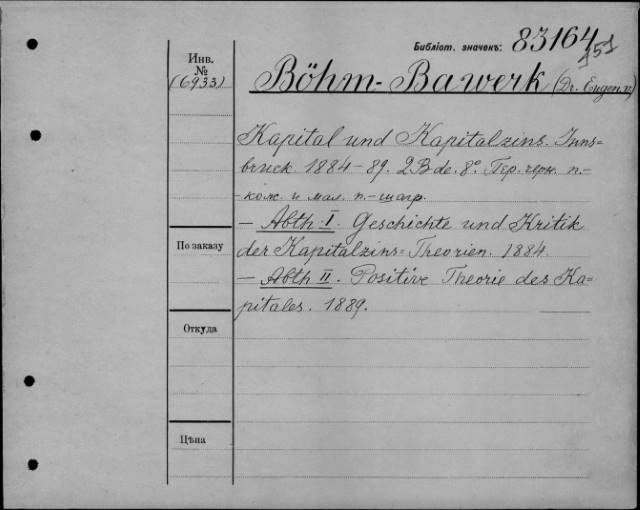 Библіот. значекъ: 83164
151
Инв.
№
(6933)
Böhm-Bawerk (Dr. Eugen v.)
Kapital und Kapitalzins. Inns-
bruck 1884-89. 2 Bde. 8° Пер. черн. п.-
-кож. и мал. п.-шагр.
— Abth. I. Geschichte und Kritik
der Kapitalzins=Theorien. 1884.
— Abth II. Positive Theorie des Ka-
pitales. 1889.
По заказу
Откуда
Цѣна